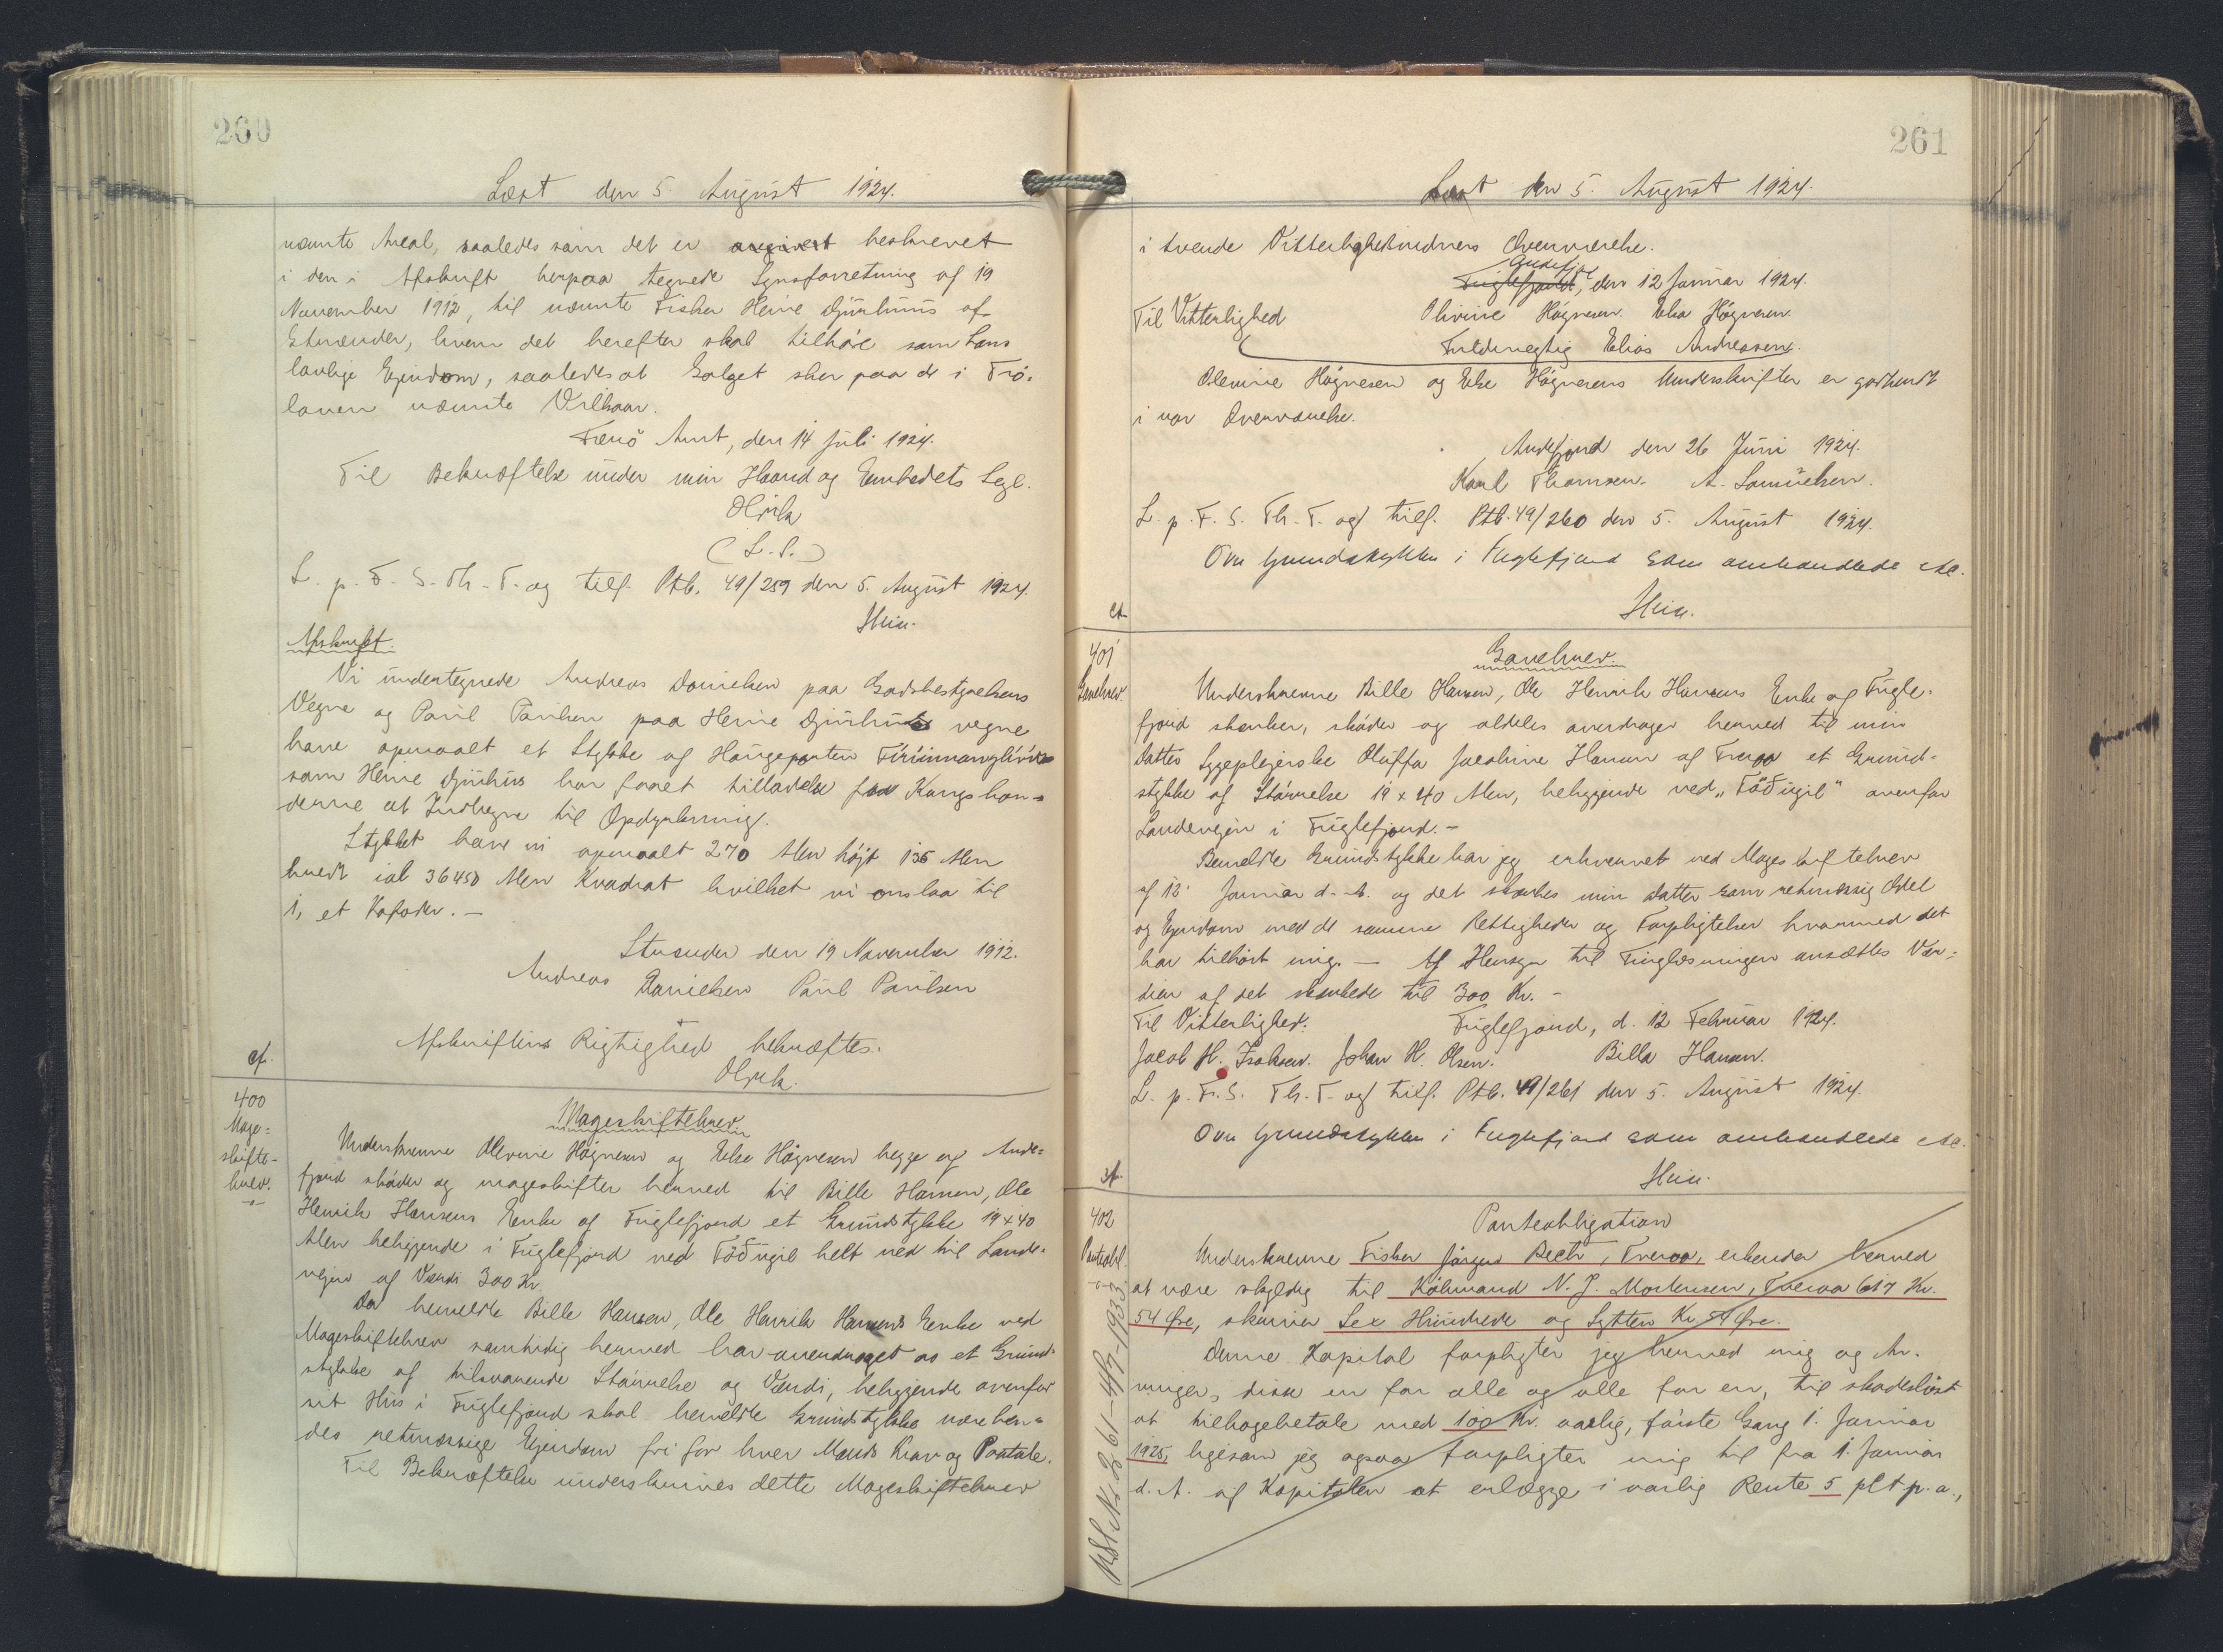 260
Læst den 5. August 1924.
nævnte Areal, saaledes som det er angivet beskrevet
i den i Afskrift herpaa tegnede Synsforretning af 19
November 1912, til nævnte Fisker Heine Djurhuus af
Strænder, hvem det herefter skal tilhøre som hans
lovlige Ejendom, saaledes at Salget sker paa de i Frø-
loven nævnte Vilkaar.
Færø Amt, den 14 Juli 1924.
Til Bekræftelse under min Haand og Embedets Segl.
Olrik
(L.S.)
L. p. F. S. Th. T. og tilf. Ptb. 49/259 den 5. August 1924.
Hein.
Afskrift.
Vi undertegnede Andreas Danielsen paa Jordbestyrelsens
Vegne og Paul Paulsen paa Heine Djurhuus vegne
have opmaalt et Stykke af Haugeparten
som Heine Djurhuus har faaet tilladelse fra Kongsbøn-
derne at Indhegne til Opdyrkning.
Stykket have vi opmaalt 270 Alen højt 135 Alen
bredt ialt 36450 Alen Kvadrat hvilket vi anslaa til
1, et Kofoder. –
Strænder den 19 November 1912.
Andreas Danielsen Paul Paulsen
Afskriftens Rigtighed bekræftes.
Olrik.
cf.
400
Mage-
skifte-
brev.
Mageskiftebrev.
Underskrevne Olevine Høgnesen og Else Høgnesen begge af Ande-
fjord skøder og mageskifter herved til Bille Hansen, Ole
Henrik Hansens Enke af Fuglefjord et Grundstykke 19 x 40
Alen beliggende i Fuglefjord ved Töðugil helt ned til Lande-
vejen af Værdi 300 Kr.
Da bemeldte Bille Hansen, Ole Henrik Hansens Enke ved
Mageskiftebrev samtidig hermed har overdraget os et Grund-
stykke af tilsvarende Størrelse og Værdi, beliggende ovenfor
sit Hus i Fuglefjord skal bemeldte Grundstykke være hen-
des retmæssige Ejendom fri for hver Mands Krav og Paatale.
Til Bekræftelse underskrives dette Mageskiftebrev
261
Læst den 5. August 1924.
i tvende Vitterlighedsvidners Overværelse.
Andefjord
Fuglefjord, den 12 Januar 1924.
Til Vitterlighed Olivine Høgnesen. Else Høgnesen.
Fuldmægtig Elias Andreasen.
Olevine Høgnesen og Else Høgnesens Underskrifter er godkendt
i vor Overværelse.
Andefjord den 26 Juni 1924.
Karl Thomsen. A. Samuelsen.
L. p. F. S. Th. T. og tilf. Ptb. 49/260 den 5. August 1924.
Om Grundstykke i Fuglefjord som omhandlede etc.
Hein.
cf.
401
Gavebrev.
Gavebrev.
Underskrevne Bille Hansen, Ole Henrik Hansens Enke af Fugle-
fjord skænker, skøder og aldeles overdrager herved til min
Datter Sygeplejerske Oluffa Jacobine Hansen af Tveraa et Grund-
stykke af Størrelse 19 x 40 Alen, beliggende ved „Töðugil" ovenfor
Landevejen i Fuglefjord. –
Bemeldte Grundstykke har jeg erhvervet ved Mageskiftebrev
af 12 Januar d. A. og det skænkes min Datter som retmæssig Odel
og Ejendom med de samme Rettigheder og Forpligtelser hvormed det
har tilhørt mig. – Af Hensyn til Tinglæsningen ansættes Vær-
dien af det skænkede til 300 Kr. –
Til Vitterlighed. Fuglefjord, d. 12 Februar 1924.
Jacob H. Isaksen. Johan H. Olsen. Billa Hansen.
L. p. F. S. Th. T. og tilf. Ptb. 49/261 den 5. August 1924.
Om Grundstykke i Fuglefjord som omhandlede etc.
Hein.
cf.
402
Panteobl.
Panteobligation
Underskrevne Fisker Jørgen Bech, Tveraa, erkender herved
at være skyldig til Købmand N. J. Mortensen, Tveraa 617 Kr.
54 Øre, skriver Sex Hundrede og Sytten Kr. 54 Øre.
Denne Kapital forpligter jeg herved mig og Ar-
vinger, disse en for alle og alle for en, til skadesløst
at tilbagebetale med 100 Kr. aarlig, første Gang 1. Januar
1925, ligesom jeg ogsaa forpligter mig til fra 1. Januar
d. A. af Kapitalen at erlægge i aarlig Rente 5 pCt p. a.,